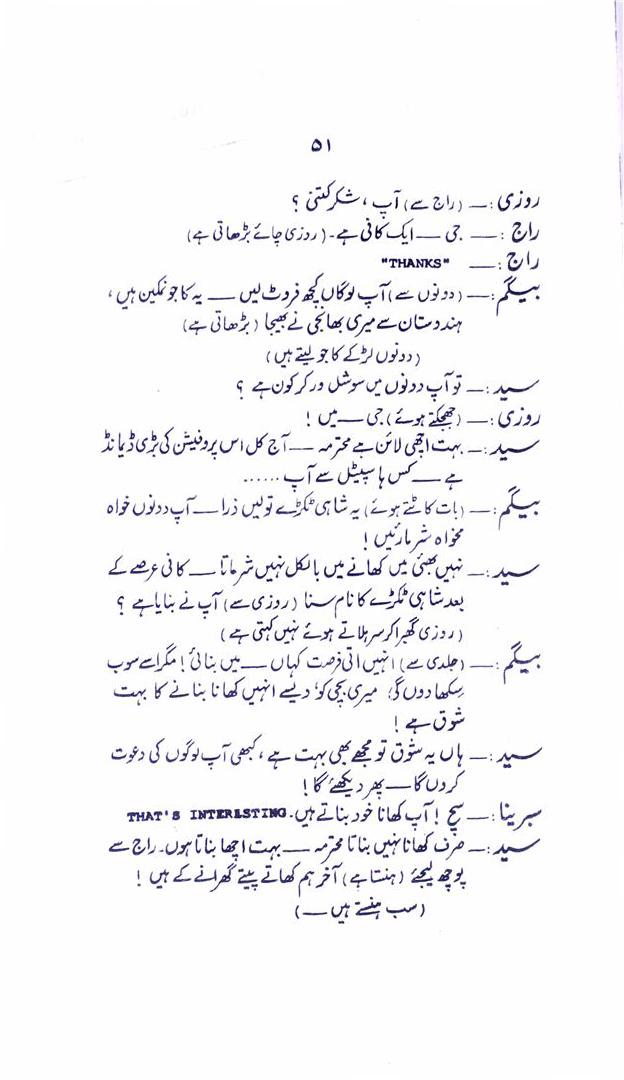 ۵۱
روزی :— (راج سے) آپ ، شکر کتنی ؟
راج :— جی — ایک کافی ہے۔ (روزی چائے بڑھاتی ہے)
راج :— "THANKS"
بیگم :— (دونوں سے) آپ لوگاں کچھ فروٹ لیں — یہ کاجو نمکین ہیں ،
ہندوستان سے میری بھانجی نے بھیجا (بڑھاتی ہے)
(دونوں لڑکے کاجو لیتے ہیں)
سید :— تو آپ دونوں میں سوشل ورکر کون ہے ؟
روزی :— (جھجکتے ہوئے) جی — میں !
سید :— بہت اچھی لائن ہے محترمہ — آج کل اس پروفیشن کی بڑی ڈیمانڈ
ہے — کس ہاسپٹل سے آپ ......
بیگم :— (بات کاٹتے ہوئے) یہ شاہی ٹکڑے تو لیں ذرا — آپ دونوں خواہ
مخواہ شرمارئیں !
سید :— نہیں بھئی میں کھانے میں بالکل نہیں شرماتا — کافی عرصے کے
بعد شاہی ٹکڑے کا نام سنا (روزی سے) آپ نے بنایا ہے ؟
(روزی گھبرا کر سر ہلاتے ہوئے نہیں کہتی ہے)
بیگم :— (جلدی سے) انہیں اتی فرصت کہاں — میں بنائی ! مگر اسے سوب
سِکھا دوں گی میری بچی کو، ویسے انہیں کھانا بنانے کا بہت
شوق ہے !
سید :— ہاں یہ شوق تو مجھے بھی بہت ہے ، کبھی آپ لوگوں کی دعوت
کروں گا — پھر دیکھئے گا !
سبرینا :— سچ ! آپ کھانا خود بناتے ہیں۔ THAT'S INTERESTING
سید :— صرف کھانا نہیں بناتا محترمہ — بہت اچھا بناتا ہوں۔ راج سے
پوچھ لیجئے (ہنستا ہے) آخر ہم کھاتے پیتے گھرانے کے ہیں !
(سب ہنستے ہیں —)